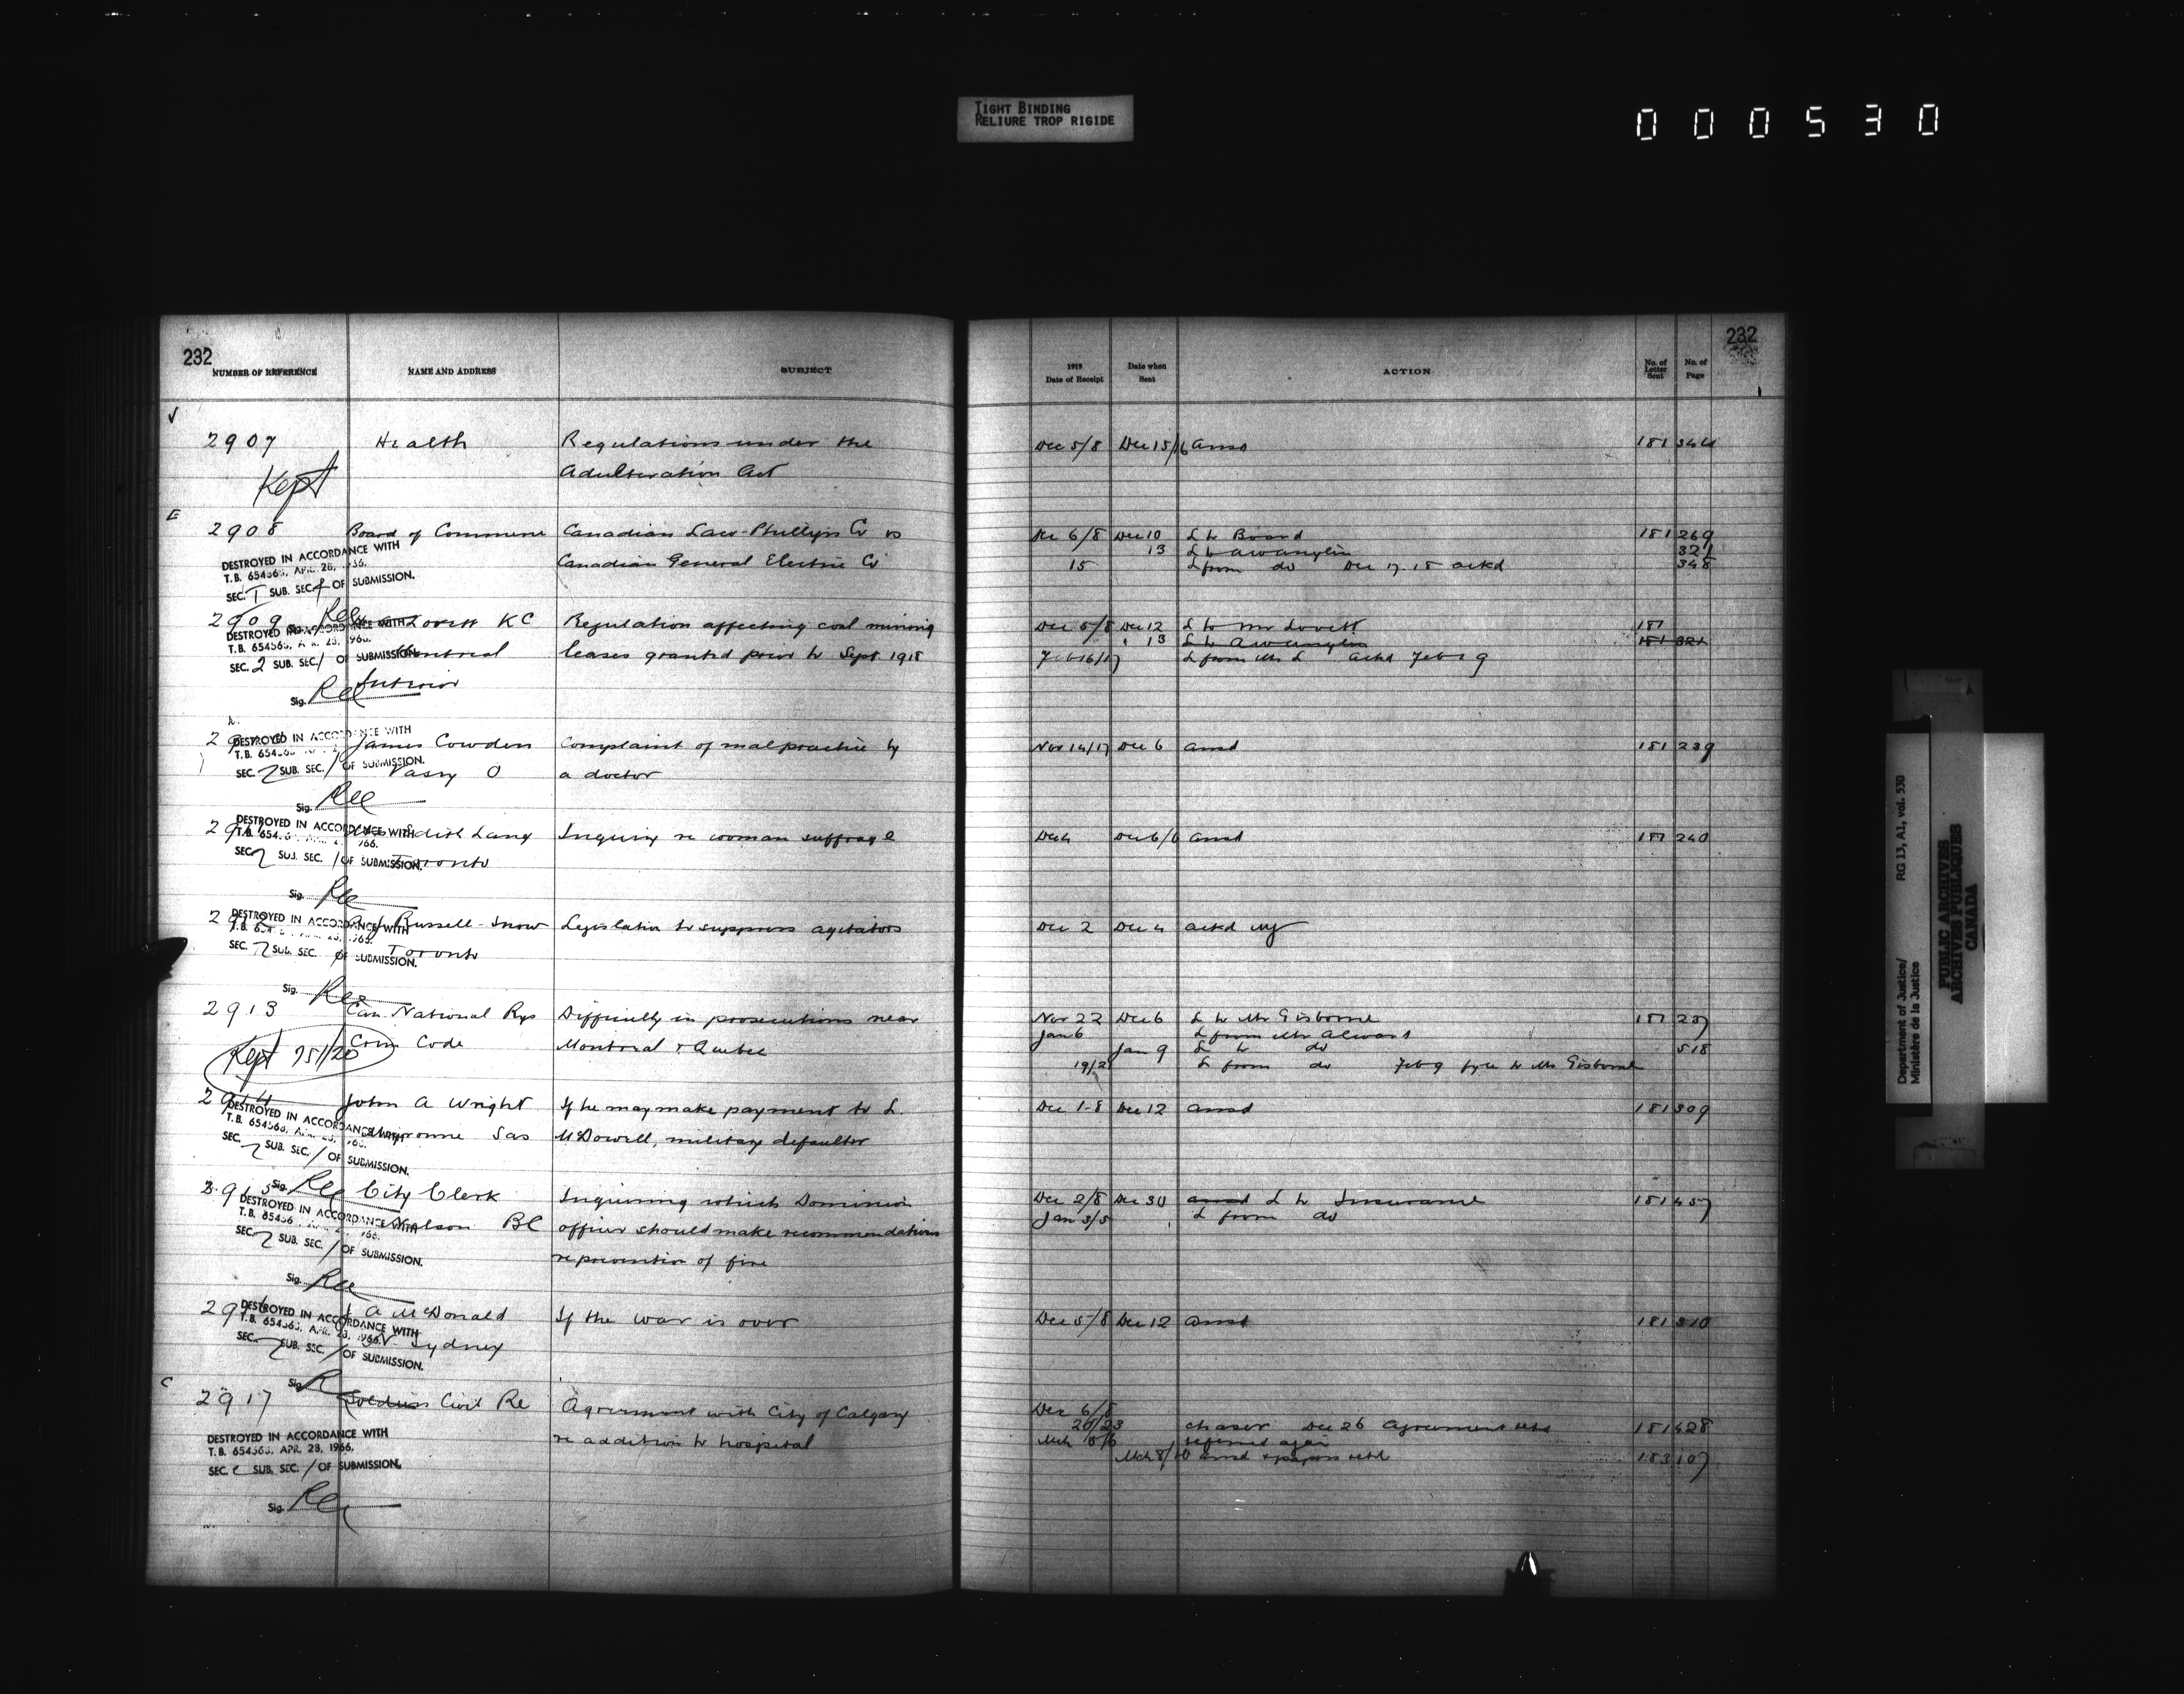 TIGHT BINDING
RELIURE TROP RIGIDE
000530
232
NUMBER OF REFERENCE NAME AND ADDRESS SUBJECT
1919 Date of Receipt Date when Sent ACTION No. of Letter Sent No. of Page
232
2907 Health Regulations under the Dec 5/8 Dec 15/16 ansd 181 344
Kept Adulteration Act
2908 Board of Commerce Canadian Law-Phillips Co vs Dec 6/8 Dec 10 L to Board 181 269
DESTROYED IN ACCORDANCE WITH
13 L to 321
T.B. 654563, APR. 28, 1966. Canadian General Electric Co 15 L from do Dec 17.18 ackd 348
SEC. 1 SUB. SEC. OF SUBMISSION.
2909 Lovett KC Regulation affecting coal mining Dec 5/8 Dec 12 L to Mr Lovett 181
DESTROYED IN ACCORDANCE WITH
T.B. 654563, APR. 28, 1966. " 13 L to 181 321
SEC. 2 SUB. SEC. 1 OF SUBMISSION. Montreal leases granted prior to Sept. 1918 Feb 16/17 L from Mr L ackd Feb 19
Sig. Interior
James Cowden Complaint of malpractice by Nov 14/17 Dec 6 ansd 181 239
DESTROYED IN ACCORDANCE WITH
SEC. 2 SUB. SEC. 1 OF SUBMISSION. O a doctor
Sig.
Edith Lang Inquiry re woman suffrage Dec 4 Dec 6/6 ansd 181 240
DESTROYED IN ACCORDANCE WITH
SEC. 2 SUB. SEC. 1 OF SUBMISSION. Toronto
Sig.
Russell-Snow Legislation to suppress agitators Dec 2 Dec 4 ackd
DESTROYED IN ACCORDANCE WITH
SEC. 2 SUB. SEC. OF SUBMISSION. Toronto
Sig.
2913 Can. National Rys Difficulty in prosecutions near Nov 22 Dec 6 L to Mr Gisborne 181 237
Jan 6 L from Mr
Kept Crim Code Montreal & Quebec Jan 9 L to do 518
19/2 L from do Feb 9 to Mr Gisborne
2914 John A Wright If he may make payment to L. Dec 1-8 Dec 12 ansd 181 309
DESTROYED IN ACCORDANCE WITH
Sas McDowell, military defaulter
SEC. 2 SUB. SEC. 1 OF SUBMISSION.
2915 Sig. City Clerk Inquiring which Dominion Dec 2/8 Dec 30 ansd L to Insurance 181 457
DESTROYED IN ACCORDANCE WITH
Nelson BC officer should make recommendations Jan 3/5 L from do
SEC. 2 SUB. SEC. 1 OF SUBMISSION. re prevention of fire
Sig.
A McDonald If the war is over Dec 5/8 Dec 12 ansd 181 310
DESTROYED IN ACCORDANCE WITH
T.B. 654563, APR. 28, 1966. N Sydney
SEC. 2 SUB. SEC. 1 OF SUBMISSION.
Sig.
2917 Soldiers Civil Re Agreement with City of Calgary Dec 6/8
20/23 chaser Dec 26 Agreement retd 181 428
DESTROYED IN ACCORDANCE WITH
re addition to hospital referred again
T.B. 654563, APR. 28, 1966. Mch 8/10 ansd & papers retd 183 107
SEC. SUB. SEC. 1 OF SUBMISSION.
Sig.
Department of Justice/
Ministère de la Justice
RG 13, A1, vol. 530
PUBLIC ARCHIVES
ARCHIVES PUBLIQUES
CANADA